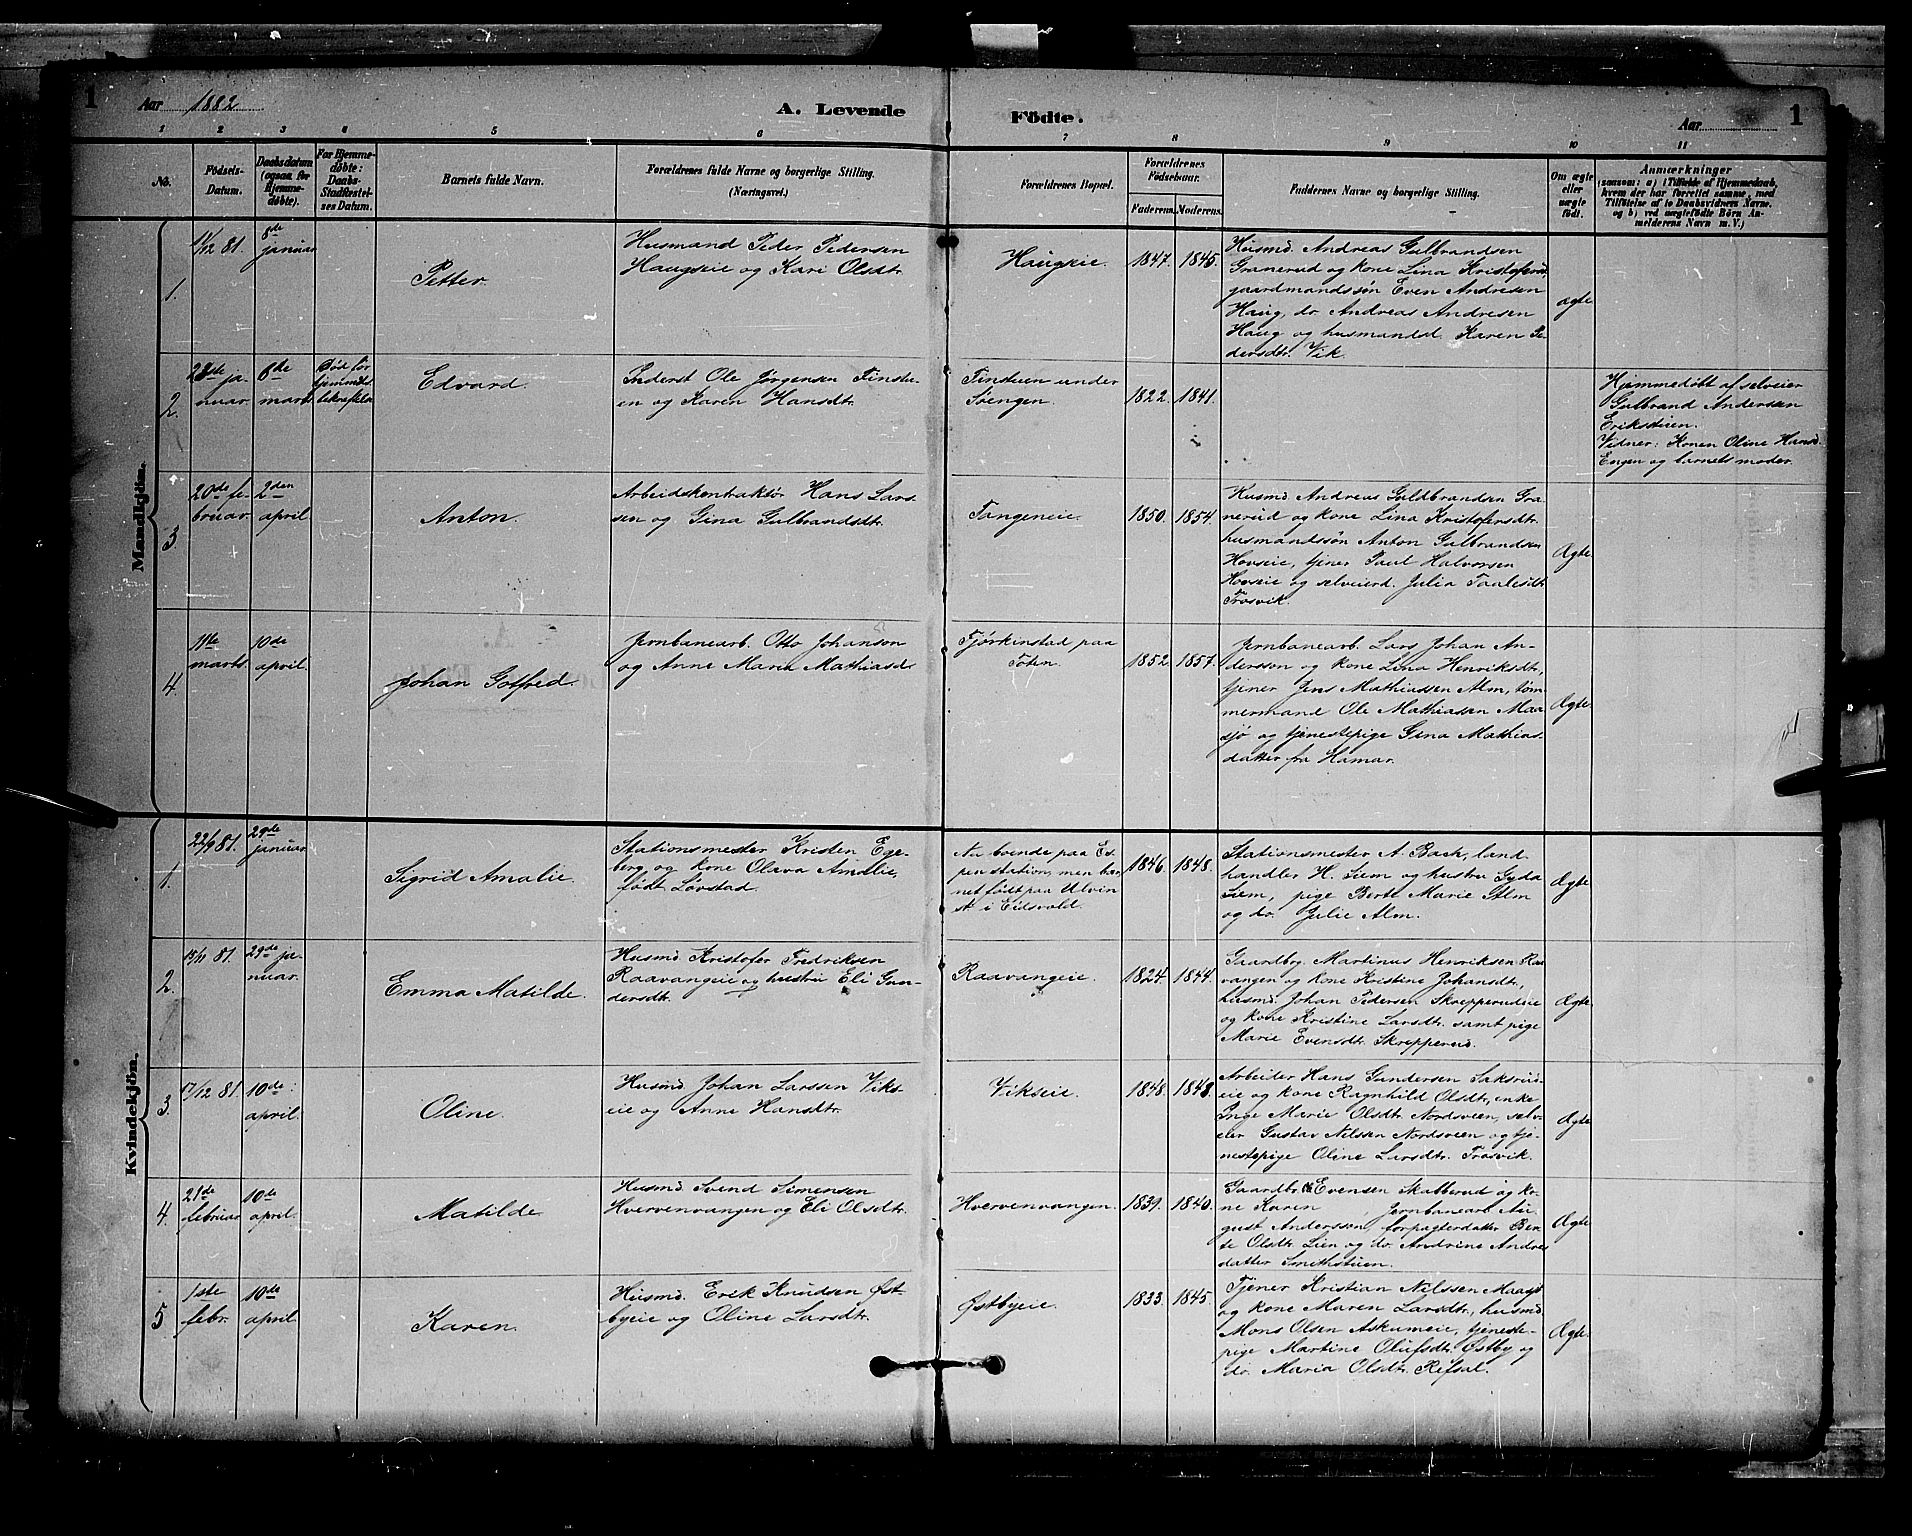 1 Aar 1882 A. Levende Födte. Aar 1
1 2 3 4 5 6 7 8 9 10 11
No.
Födsels-
Datum.
Daabsdatum
(ogsaa for
Hjemme-
døbte).
For Hjemme-
døbte:
Daabs-
Stadfæstel-
ses Datum.
Barnets fulde Navn.
Forældrenes fulde Navne og borgerlige Stilling.
(Næringsvei.)
Forældrenes Bopæl.
Forældrenes
Födselsaar.
Faderens. Moderens.
Faddernes Navne og borgerlige Stilling.
Om ægte
eller
uægte
født.
Anmærkninger
(saasom: a) i Tilfælde af Hjemmedaab,
hvem der har forrettet samme, med
Tilføielse af to Daabsvidners Navne.
og b) ved uægtefødte Börn An-
melderens Navn m. V.)
Mandkjön.
1.
1/12 81.
8de
januar
Petter.
Husmand Peder Pedersen
Haugseie og Kari Olsdtr.
Haugseie.
1847. 1845.
Husmd. Andreas Gulbrandsen
Granerud og kone Lina Kristofersd,
gaardmandssøn Even Andresen
Haug, do Andreas Andresen
Haug og husmandsd. Karen Pe-
dersdtr. Vik.
ægte
2.
28de ja-
nuar.
8de
marts
Død før
hjemmed.
bekræftelse
Edvard.
Inderst Ole Jørgensen Finstu-
en og Karen Hansdtr.
Finstuen under
Soengen.
1822. 1841.
Hjemmedøbt af selveier
Gulbrand Andersen
Erikstuen.
Vidner: Konen Oline Hansd.
Engen og barnets moder.
3.
20de fe-
bruar.
2den
april.
Anton.
Arbeidskontraktør Hans Lars-
sen og Gina Gulbrandsdtr.
Tangeneie.
1850. 1854.
Husmd. Andreas Guldbrandsen Gra-
nerud og kone Lina Kristofersdtr.
husmandssøn Anton Gulbrandsen
Hovseie, tjener Paul Halvorsen
Hovseie og selveierd. Julia Paulsdtr.
Trosvik.
Ægte
4.
11te
marts
10de
april.
Johan Gotfred.
Jernbanearb. Otto Johanson
og Anne Maria Mathiasd.
Fjørkinstad paa
Toten.
1852 1857.
Jernbanearb. Lars Johan An-
dersson og kone Lina Henriksdtr,
tjener Jens Mathiassen Alm, tøm-
mermand Ole Mathiassen Maa-
sjø og tjenestepige Gina Mathias-
datter fra Hamar.
Ægte
Kvindekjön.
1.
22/9 81.
29de
januar
Sigrid Amalie.
Stationsmester Kristen Ege-
berg og kone Olava Amalie,
født Løvstad.
Nu boende paa Es-
pen station, men bar-
net født paa Ulvin
st. i Eidsvold.
1846. 1848.
Stationsmester A. Bach, land-
handler H. Siem og hustru Gyda
Siem, pige Berte Marie Alm
og do. Julie Alm.
Ægte
2.
15/11 81.
29de ja-
nuar.
Emma Matilde.
Husmd. Kristofer Fredriksen
Raavangeie og hustru Eli Gun-
dersdtr.
Raavangeie.
1824. 1844.
Gaardbr. Martinus Henriksen Raa-
vangen og kone Kristine Johansdtr.,
husmd. Johan Pedersen Skrepperudeie
og kone Kristine Larsdtr. samt pige
Marie Evensdtr. Skrepperud.
Ægte
3.
17/12 81.
10de
april.
Oline.
Husmd. Johan Larssen Viks-
eie og Anne Hansdtr.
Vikseie.
1848. 1848.
Arbeider Hans Gundersen Saksrud-
eie og kone Ragnhild Olsdtr, enke
Inge Marie Olsdtr. Nordsveen, selv-
eier Gustav Nilssen Nordsveen og tje-
nestepige Oline Larsdtr. Trosvik.
Ægte
4.
21de
februar
10de
april.
Matilde.
Husmd. Svend Simensen
Hvervenvangen og Eli Olsdtr.
Hvervenvangen.
1839. 1840.
Gaardbr. Evensen Skatterud og ko-
ne Karen Jernbanearb. Au-
gust Anderssen, forpagterdatter Ber-
te Olsdtr. Lien og do. Andrine Andres-
datter Smithstuen.
Ægte
5.
1ste
febr.
10de
april
Karen.
Husmd. Erik Knudsen Øst-
byeie og Oline Larsdtr.
Østbyeie.
1833. 1845.
Tjener Kristian Nilssen Maasjø
og kone Maren Larsdtr., husmd.
Mons Olsen Askumeie, tjeneste-
pige Martine Olufsdtr. Østby og
do. Maria Olsdtr. Refsal.
Ægte.